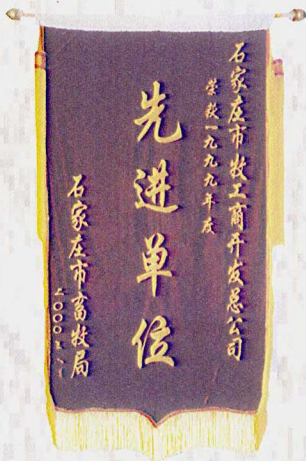 石家庄市牧工商开发总公司
荣获一九九九年度
先进单位
石家庄市畜牧局
二〇〇〇年